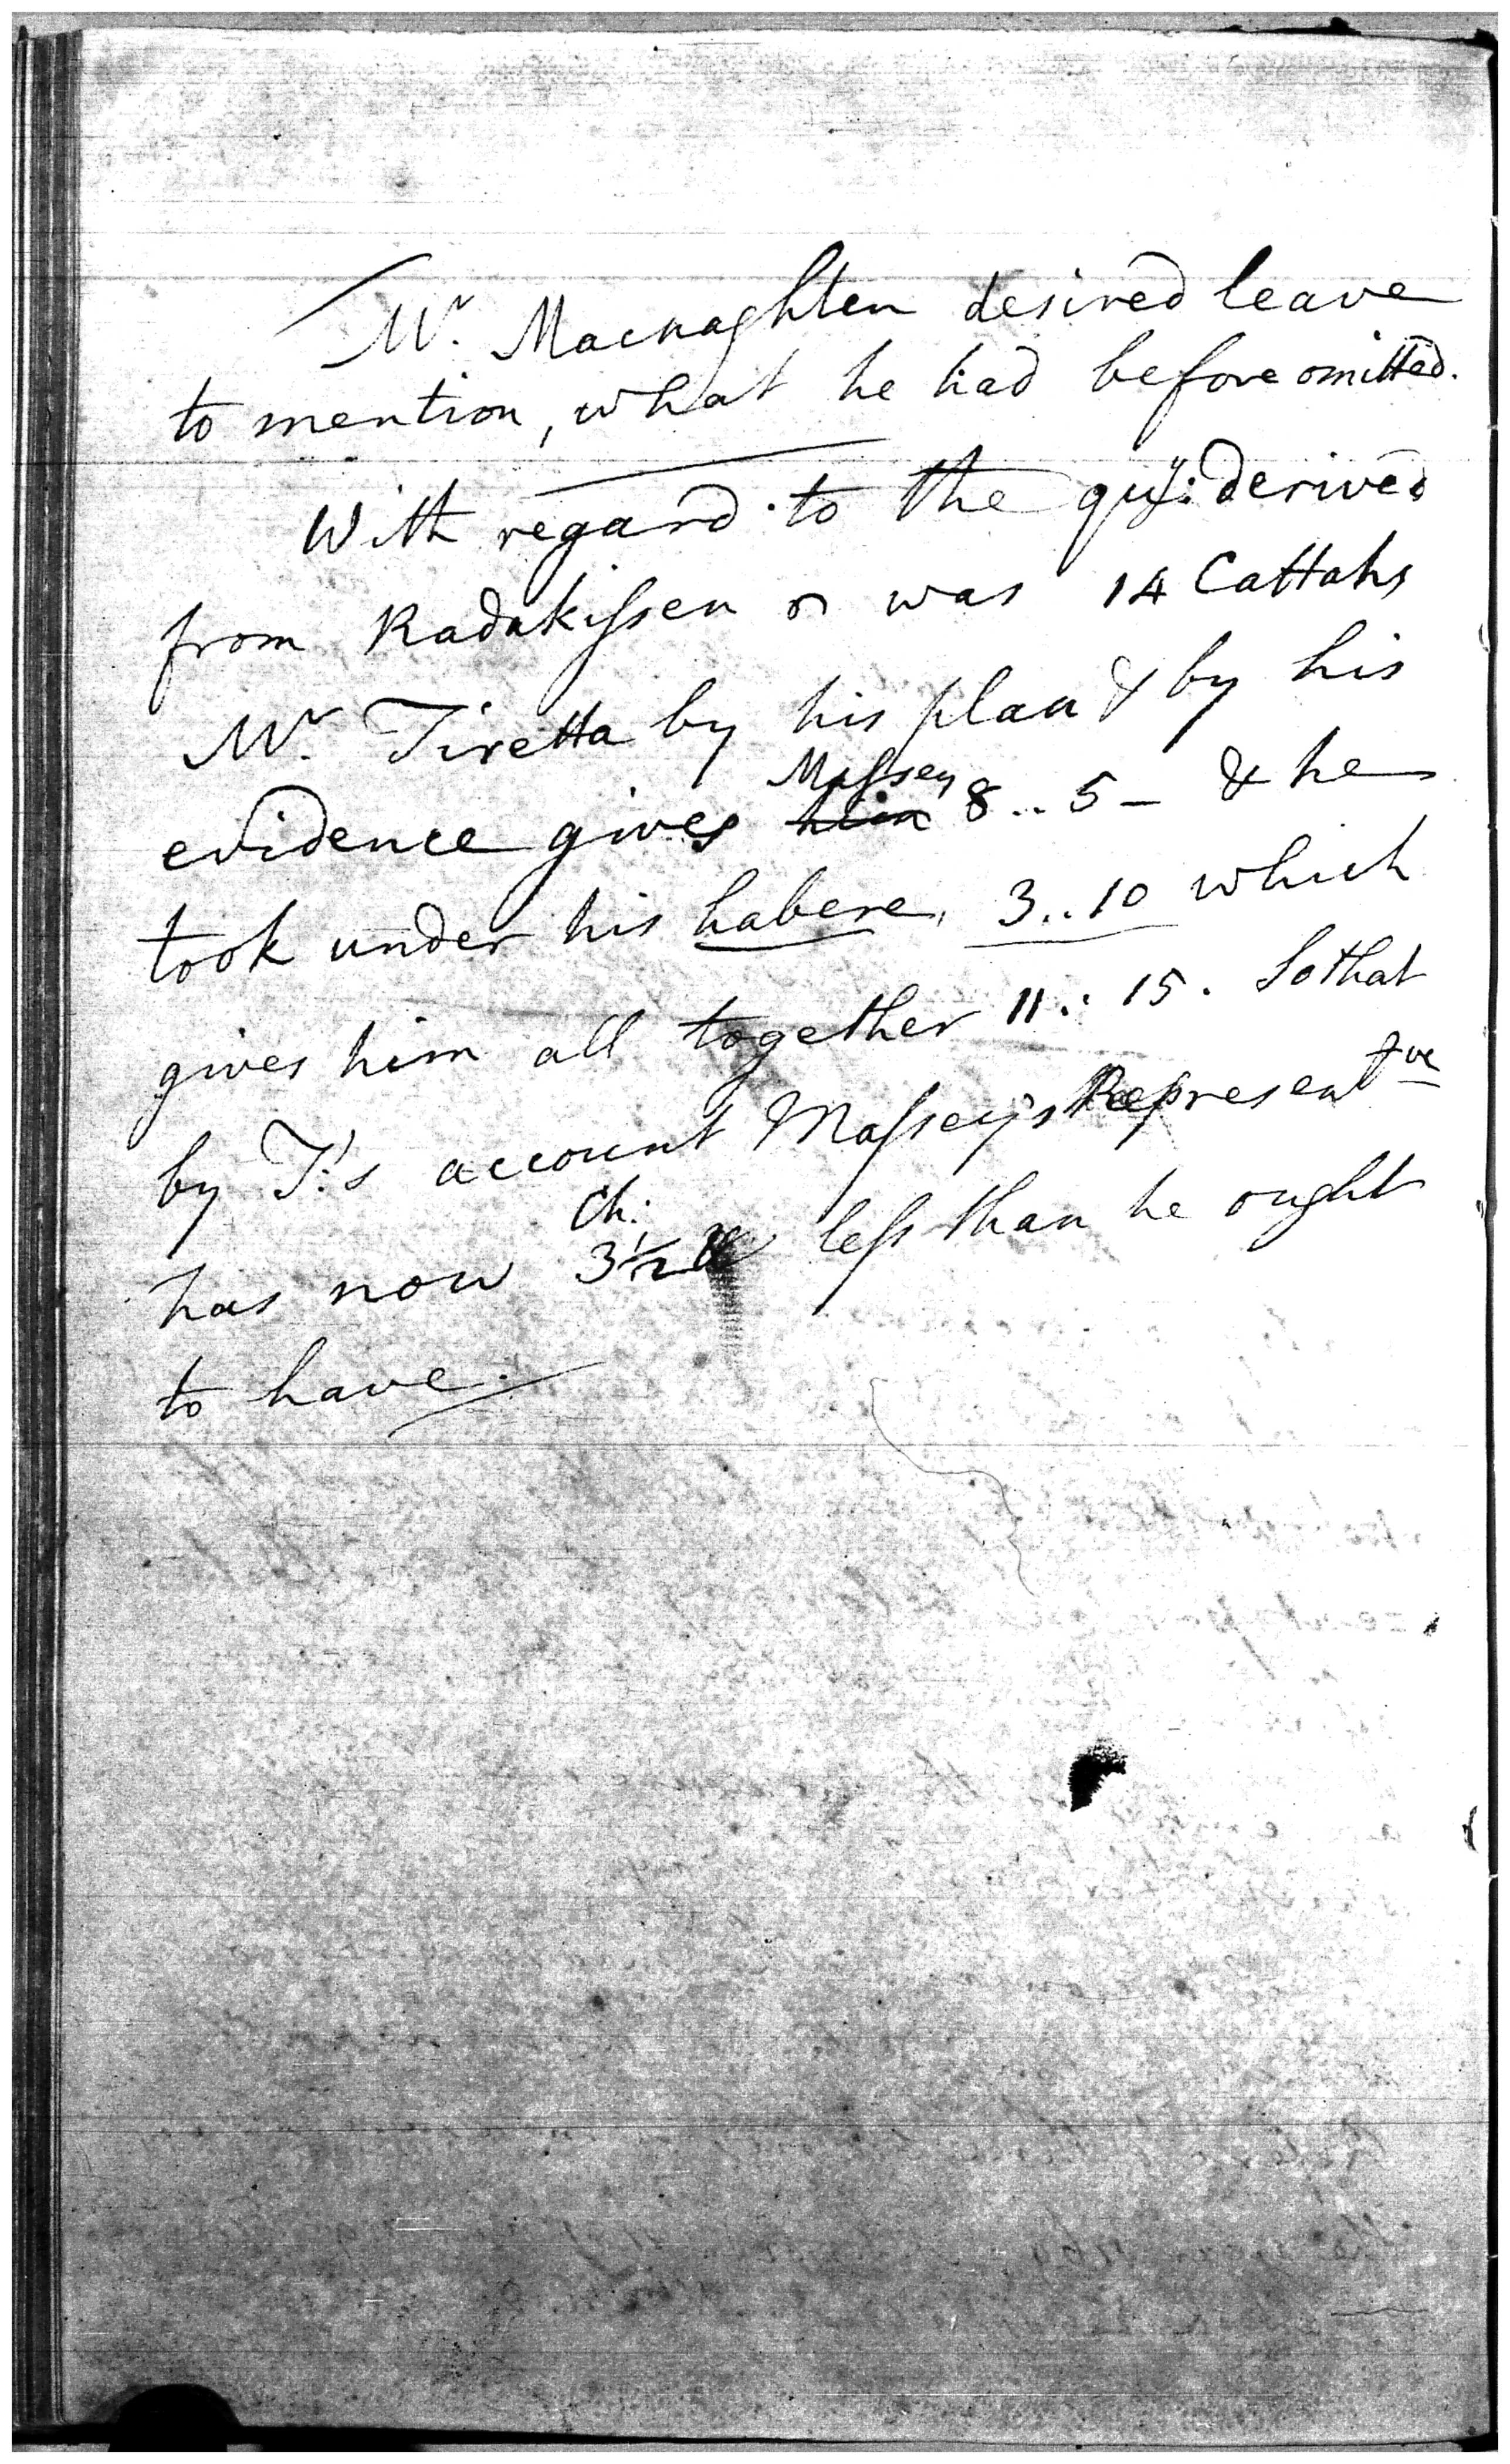 Mr. Macnaghten desired leave
to mention, what he had before omitted.
With regard to the qty: derived
from Radakissen was 14 Cattahs
Mr. Tiretta by his plan & by his
Massey
evidence gives him 8..5 - & he
took under his habere, 3..10 which
gives him all together 11..15. So that
by T:'s account Massey's Representve
Ch:
has now 3 1/2 less than he ought
to have.